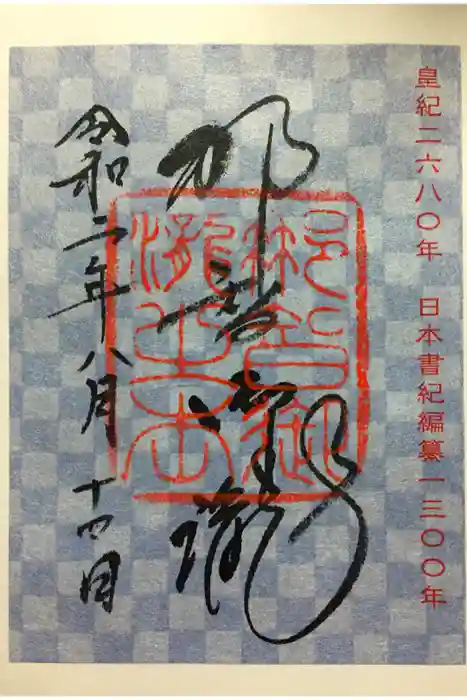 皇紀二六八〇年 日本書紀編纂一三〇〇年
那智御瀧
令和二年八月十四日